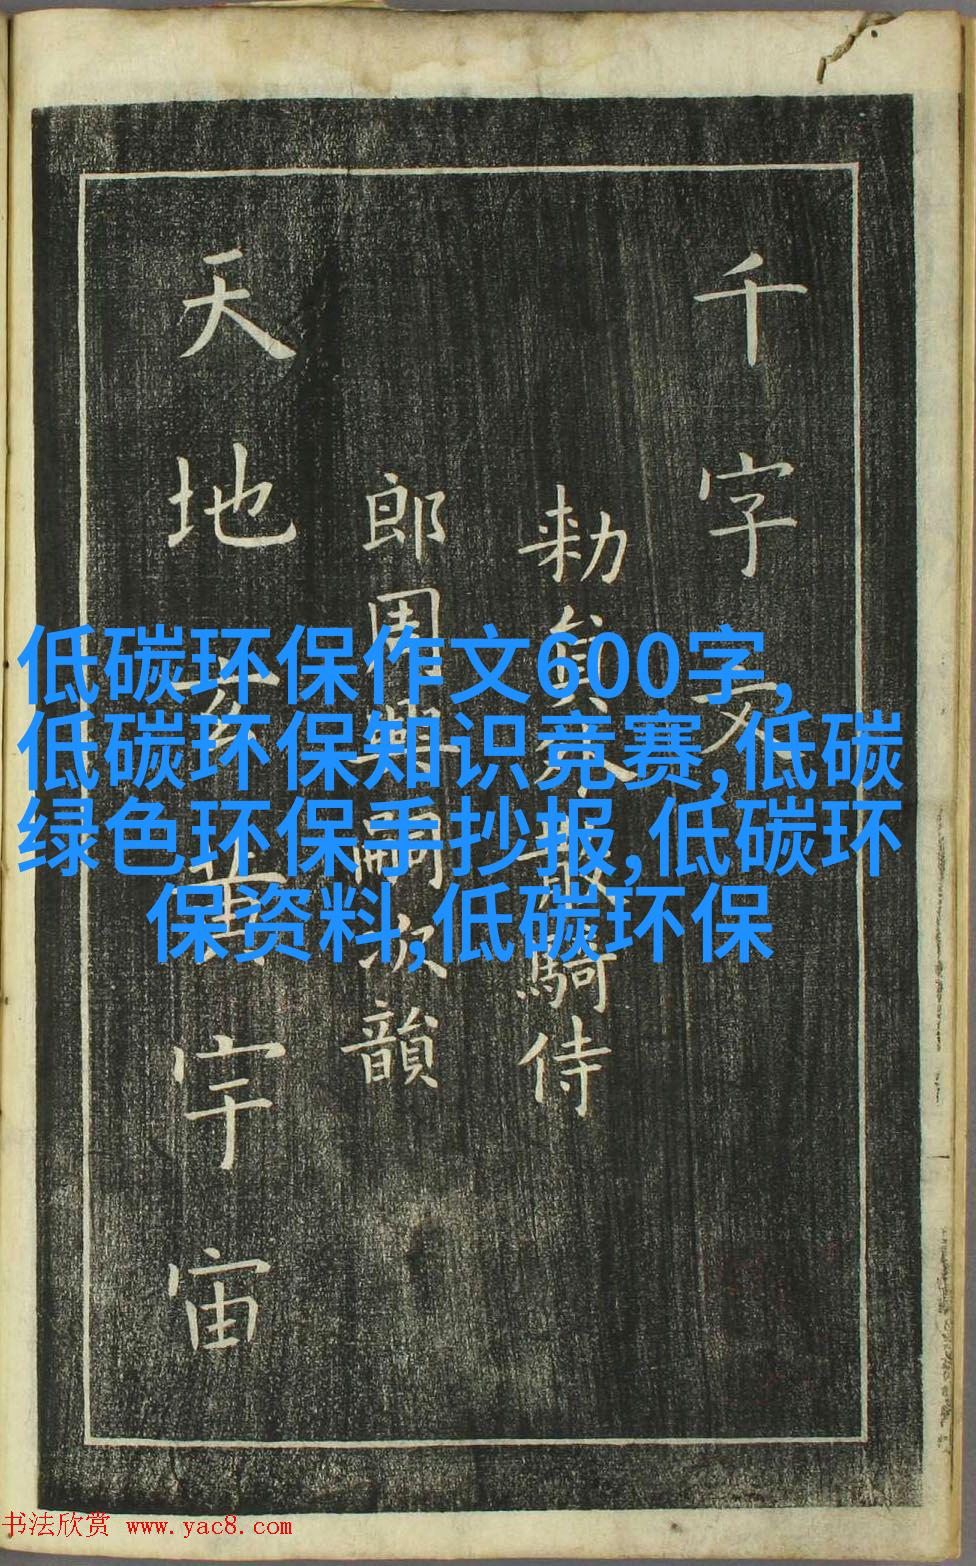 千字文
勑貟外散騎侍
郎周興嗣次韻
天地玄黃宇宙
低碳环保作文600字,
低碳环保知识竞赛,低碳
绿色环保手抄报,低碳环
保资料,低碳环保
书法欣赏 www.yac8.com